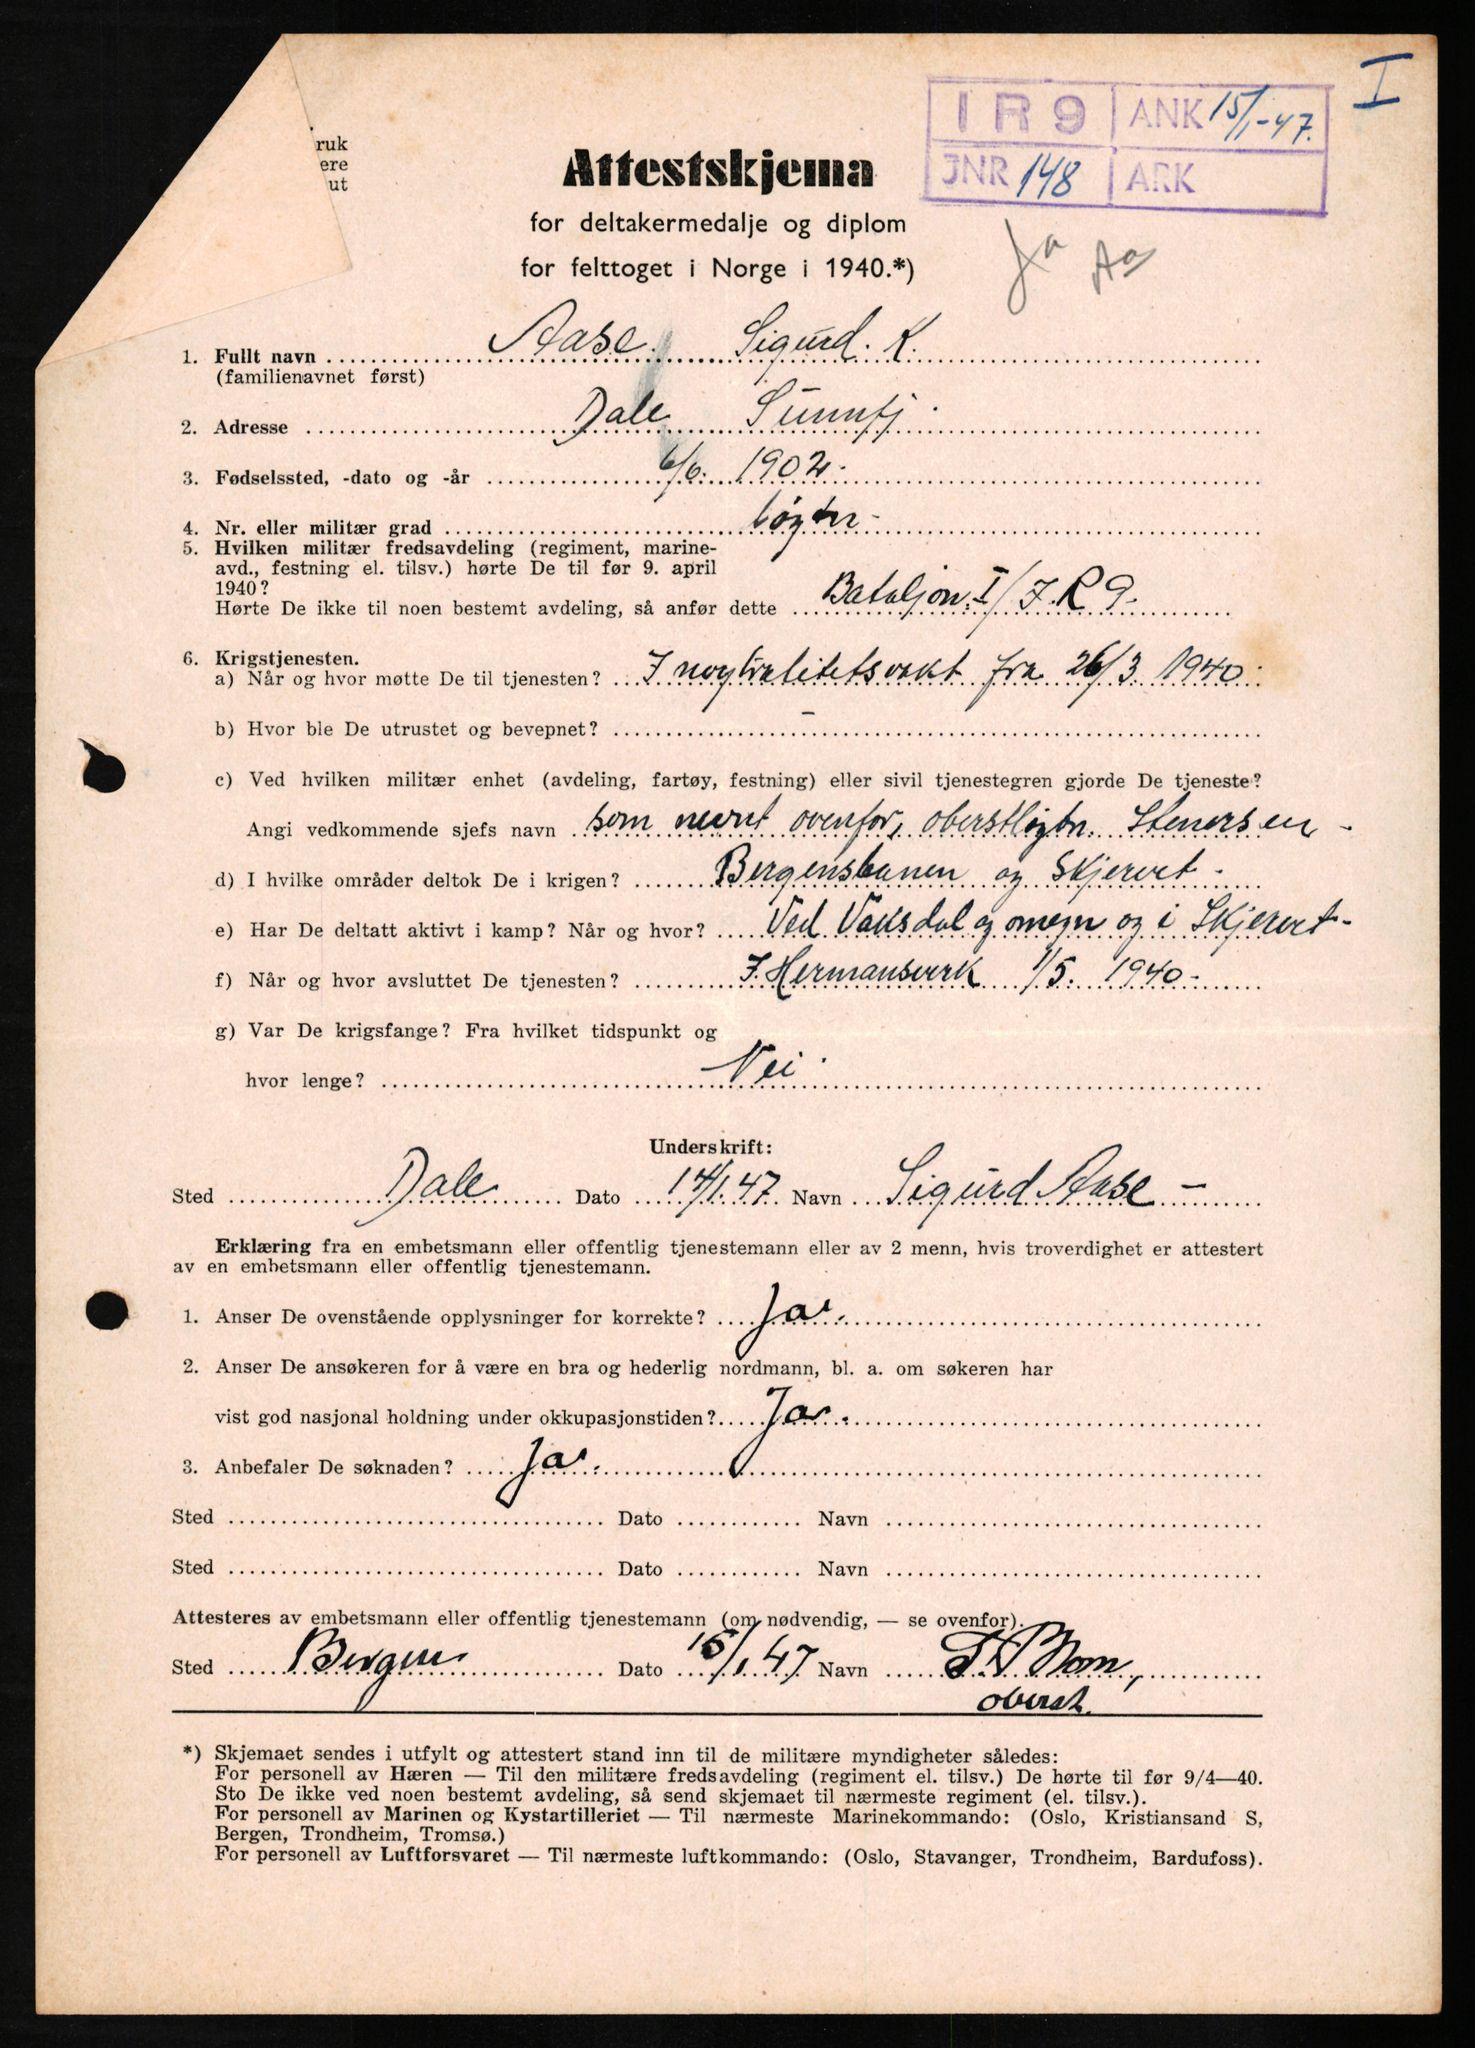 I
IR9 ANK 15/1-47.
JNR 148 ARK
ruk
ere
ut
Attestskjema
for deltakermedalje og diplom
for felttoget i Norge i 1940.*)
Ja Aa
1. Fullt navn Aase Sigurd. K.
(familienavnet først)
2. Adresse Dale Sunnfj.
3. Fødselssted, -dato og -år 6/6. 1902.
4. Nr. eller militær grad løytn.
5. Hvilken militær fredsavdeling (regiment, marine-
avd., festning el. tilsv.) hørte De til før 9. april
1940?
Hørte De ikke til noen bestemt avdeling, så anfør dette Bataljon I/I.R 9.
6. Krigstjenesten.
a) Når og hvor møtte De til tjenesten? I nøytralitetsvakt fra 26/3 1940.
b) Hvor ble De utrustet og bevepnet? –
c) Ved hvilken militær enhet (avdeling, fartøy, festning) eller sivil tjenestegren gjorde De tjeneste?
Angi vedkommende sjefs navn som nevnt ovenfor, oberstløytn. Stenersen -
d) I hvilke områder deltok De i krigen? Bergensbanen og Skjervet -
e) Har De deltatt aktivt i kamp? Når og hvor? Ved Vaksdal og omegn og i Skjervet -
f) Når og hvor avsluttet De tjenesten? I. Hermansverk 1/5. 1940 -
g) Var De krigsfange? Fra hvilket tidspunkt og
hvor lenge? Nei
Underskrift:
Sted Dale Dato 14/1.47 Navn Sigurd Aase -
Erklæring fra en embetsmann eller offentlig tjenestemann eller av 2 menn, hvis troverdighet er attestert
av en embetsmann eller offentlig tjenestemann.
1. Anser De ovenstående opplysninger for korrekte? Ja.
2. Anser De ansøkeren for å være en bra og hederlig nordmann, bl. a. om søkeren har
vist god nasjonal holdning under okkupasjonstiden? Ja.
3. Anbefaler De søknaden? Ja.
Sted Dato Navn
Sted Dato Navn
Attesteres av embetsmann eller offentlig tjenestemann (om nødvendig, — se ovenfor).
Sted Bergen Dato 15/1.47 Navn
oberst.
*) Skjemaet sendes i utfylt og attestert stand inn til de militære myndigheter således:
For personell av Hæren — Til den militære fredsavdeling (regiment el. tilsv.) De hørte til før 9/4—40.
Sto De ikke ved noen bestemt avdeling, så send skjemaet til nærmeste regiment (el. tilsv.).
For personell av Marinen og Kystartilleriet — Til nærmeste Marinekommando: (Oslo, Kristiansand S,
Bergen, Trondheim, Tromsø.)
For personell av Luftforsvaret — Til nærmeste luftkommando: (Oslo, Stavanger, Trondheim, Bardufoss).